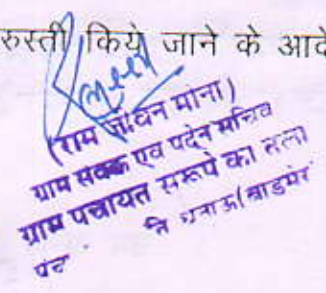 रुस्ती किये जाने के आदे
(राम जीवन मीना)
ग्राम सेवक एवं पदेन सचिव
ग्राम पंचायत सरूपे का तला
ति धनाऊ(बाडमेर